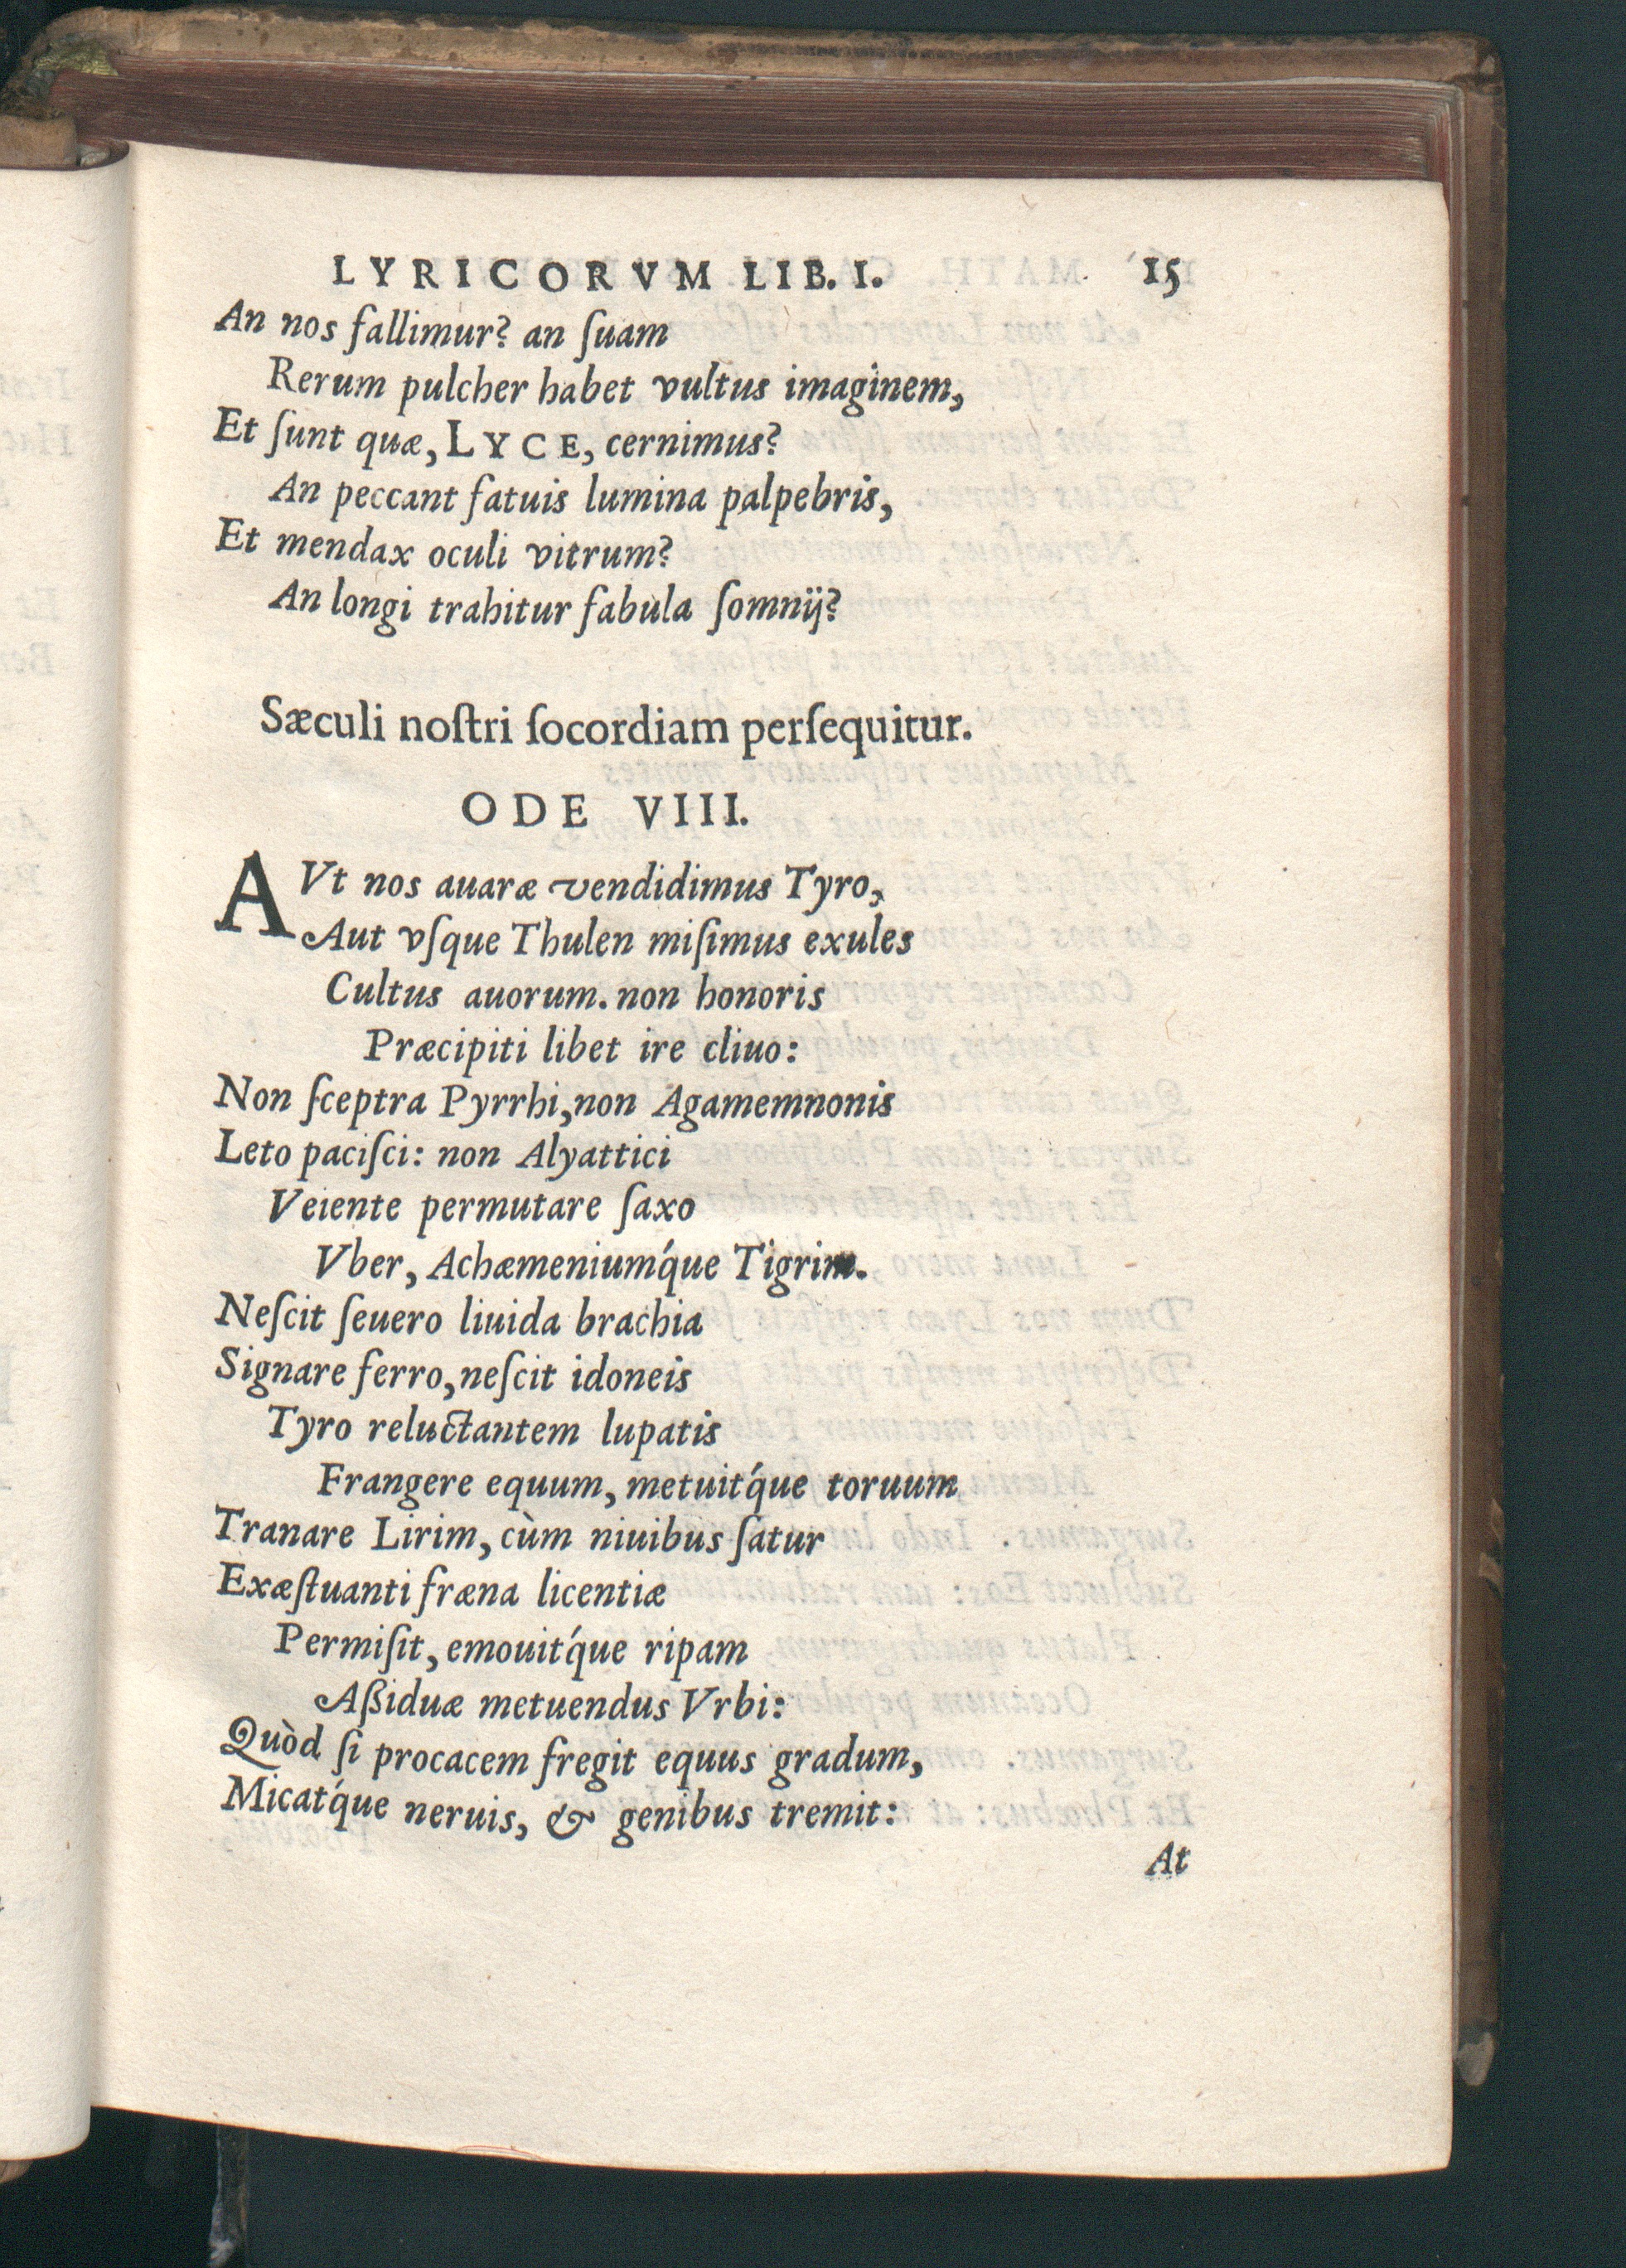 LYRICORVM LIB. I. 15
An nos fallimur? an ſuam
Rerum pulcher habet vultus imaginem,
Et ſunt quæ, LYCE, cernimus?
An peccant fatuis lumina palpebris,
Et mendax oculi vitrum?
An longi trahitur fabula ſomnij?
Sæculi noſtri ſocordiam perſequitur.
ODE VIII.
AVt nos auaræ vendidimus Tyro,
Aut vſque Thulen miſimus exules
Cultus auorum. non honoris
Præcipiti libet ire cliuo:
Non ſceptra Pyrrhi, non Agamemnonis
Leto paciſci: non Alyattici
Veiente permutare ſaxo
Vber, Achæmeniumq́ue Tigrim.
Neſcit ſeuero liuida brachia
Signare ferro, neſcit idoneis
Tyro reluctantem lupatis
Frangere equum, metuitq́ue toruum
Tranare Lirim, cùm niuibus ſatur
Exæſtuanti fræna licentiæ
Permiſit, emouitq́ue ripam
Aßiduæ metuendus Vrbi:
Quòd ſi procacem fregit equus gradum,
Micatq́ue neruis, & genibus tremit:
At